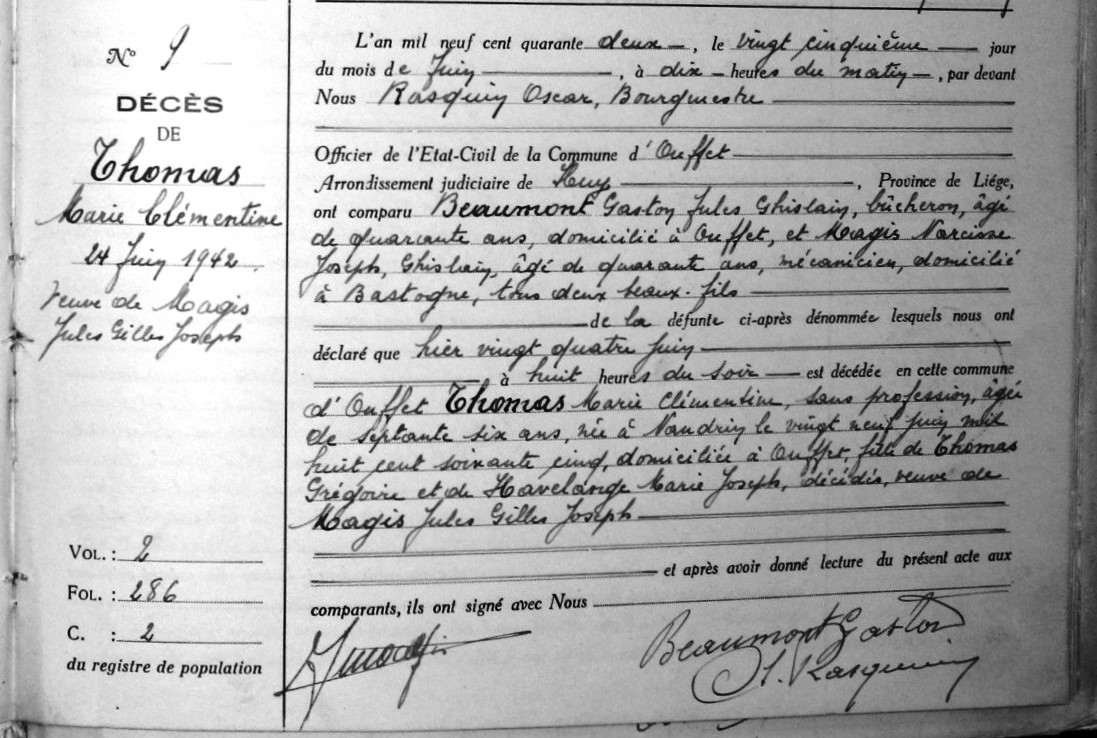 N° 9
DÉCÈS
DE
Thomas
Marie Clémentine
24 Juin 1942
Veuve de Magis
Jules Gilles Joseph
VOL. : 2
FOL. : 286
C. : 2
du registre de population
L'an mil neuf cent quarante deux, le vingt cinquième jour
du mois de Juin, à dix heures du matin, par devant
Nous Rasquin Oscar, Bourgmestre
Officier de l'Etat-Civil de la Commune d'Ouffet
Arrondissement judiciaire de Huy, Province de Liége,
ont comparu Beaumont Gaston Jules Ghislain, bûcheron, âgé
de quarante ans, domicilié à Ouffet, et Magis Narcisse
Joseph, Ghislain, âgé de quarante ans, mécanicien, domicilié
à Bastogne, tous deux beaux-fils
de la défunte ci-après dénommée lesquels nous ont
déclaré que hier vingt quatre juin
à huit heures du soir est décédée en cette commune
d'Ouffet Thomas Marie Clémentine, sans profession, âgée
de septante six ans, née à Nandrin le vingt neuf juin mil
huit cent soixante cinq, domiciliée à Ouffet, fille de Thomas
Grégoire et de Havelange Marie Joseph, décédés, veuve de
Magis Jules Gilles Joseph
et après avoir donné lecture du présent acte aux
comparants, ils ont signé avec Nous
Beaumont Gaston
Rasquin